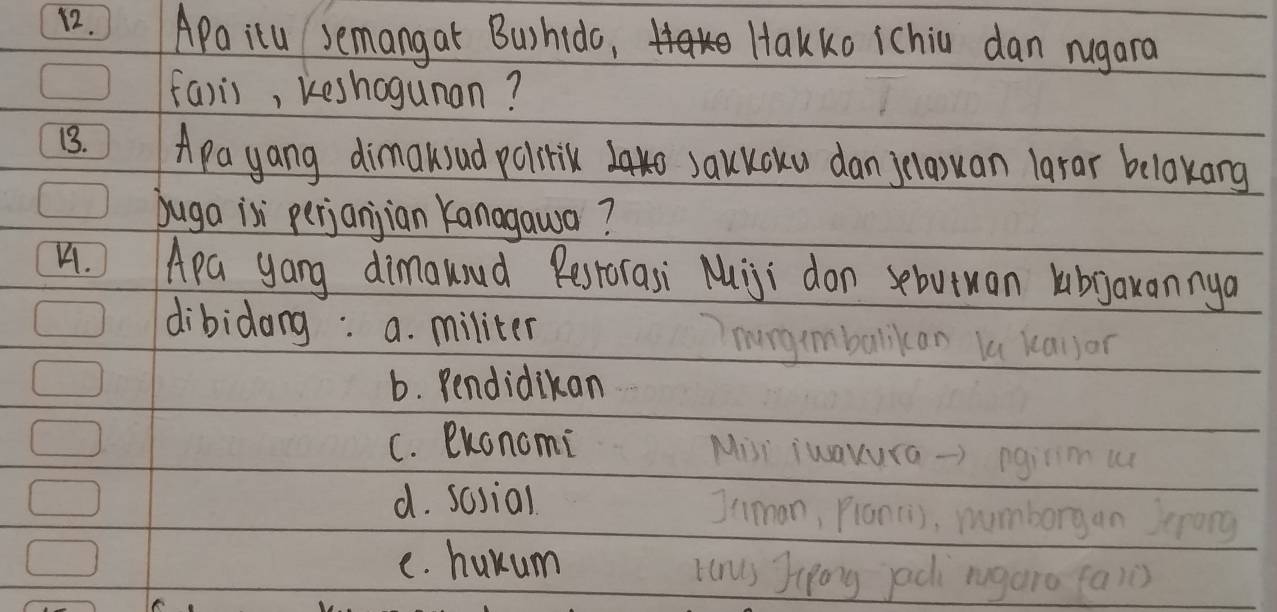 12. Apa itu semangat Bushido, Hakko ichiu dan negara
fasis, keshogunan?
13. Apa yang dimaksud politik sakkoku dan jelaskan latar belakang
juga isi perjanjian Kanagawa?
14. Apa yang dimaksud Restorasi Meiji dan sebutkan kebijakannya
dibidang : a. militer
mengembalikan ke kaisar
b. Pendidikan
c. Ekonomi
Misi iwakura → ngirim ke
d. sosial
Jerman, Prancis, pembangan Jepang
e. hukum
terus Jepang jadi negara fasis